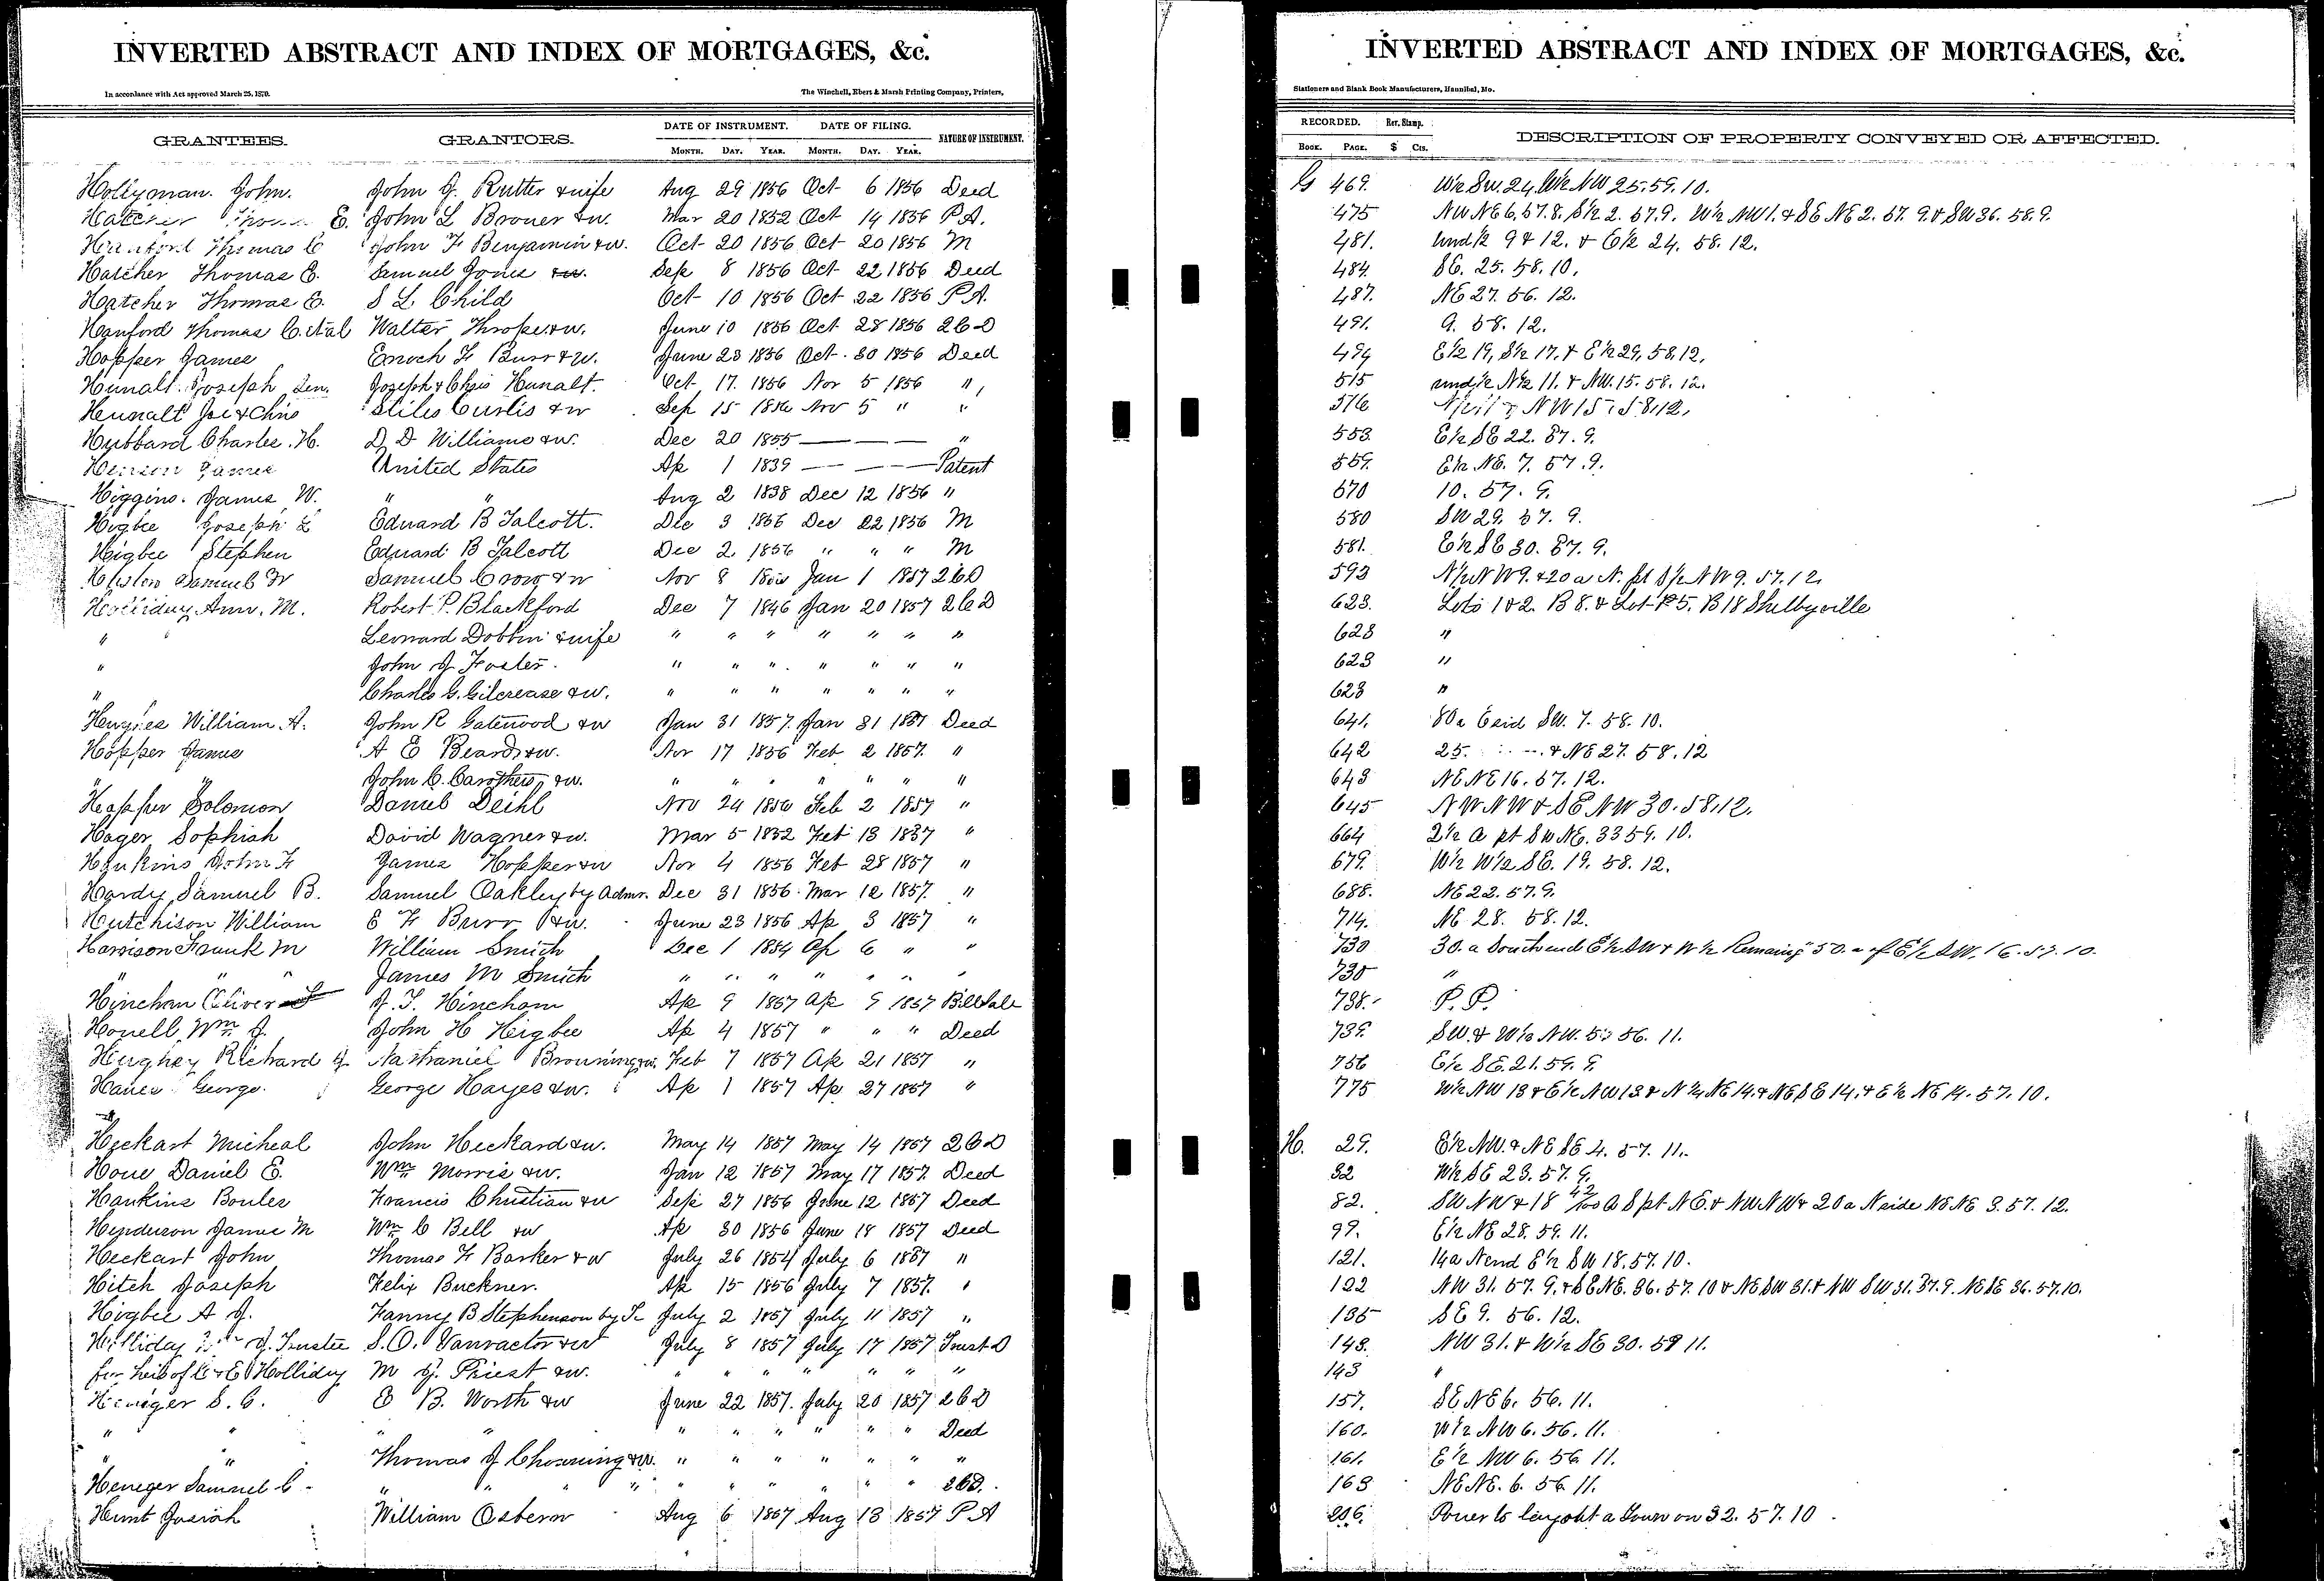 INVERTED ABSTRACT AND INDEX OF MORTGAGES, &c.
In accordance with Act approved March 25, 1870.
The Winchell, Ebert & Marsh Printing Company, Printers,
GRANTEES. GRANTORS. DATE OF INSTRUMENT. DATE OF FILING. NATURE OF INSTRUMENT.
MONTH. DAY. YEAR. MONTH. DAY. YEAR.
Hollyman. John. John J. Rutter & wife Aug 29 1856 Oct 6 1856 Deed
Hatcher E. John L Broner & w. Mar 20 1852 Oct 14 1856 P.A.
Hanford Thomas C John F Benjamin & w. Oct 20 1856 Oct 20 1856 M
Hatcher Thomas E. Samuel Jones & w. Sep 8 1856 Oct 22 1856 Deed
Hatcher Thomas E. S L. Child Oct 10 1856 Oct 22 1856 P.A.
Hanford Thomas C. et al Walter Thrope & w. June 10 1856 Oct 28 1856 2 C D
Hopper James Enoch F Burr & w. June 23 1856 Oct. 30 1856 Deed
Hunalt. Joseph Sen. Joseph & Chris Hunalt. Oct 17. 1856 Nov 5 1856 "
Hunalt Joe & Chris Stiles Curtis & w Sep 15 1856 Nov 5 " "
Hubbard Charles. H. D. D Williams & w. Dec 20 1855 — — — "
James United States Ap 1 1839 — — — Patent
Higgins. James W. " " Aug 2 1838 Dec 12 1856 "
Higbee Joseph L Edward B Talcott. Dec 3 1856 Dec 22 1856 M
Higbee Stephen Edward B Talcott Dec 2 1856 " " " M
Samuel W Samuel Crow & w Nov 8 Jan 1 1857 2 C D
Holliday Ann. M. Robert P. Blackford Dec 7 1846 Jan 20 1857 2 C D
" Leonard Dobbin & wife " " " " " " "
" John J Foster. " " " " " " "
" Charles G. Gilcrease & w. " " " " " " "
Hughes William. A. John R Gatewood & w Jan 31 1857. Jan 31 1857 Deed
Hopper James A E Beard & w. Nov 17 1856 Feb 2 1857. "
John C. Carothers & w. " " " " " " "
Hopper Solomon Daniel Deihl Nov 24 1856 Feb 2 1857 "
Hager Sophiah David Wagner & w. Mar 5 1852 Feb 13 1857 "
Hankins John F James Hopper & w Nov 4 1856 Feb 28 1857 "
Hardy, Samuel B. Samuel Oakley by Admr. Dec 31 1856. Mar 12 1857. "
Hutchison William E F Burr & w. June 23 1856 Ap 3 1857 "
Harrison Frank M William Smith Dec 1 1854 Ap 6 " "
" " " James M Smith " " " " " " "
Hincham Oliver J. T. Hincham Ap 9 1857 Ap 9 1857 Bill Sale
Howell, Wm J. John H Higbee Ap 4 1857 " " " Deed
Hughey Richard J Nathaniel Browning & w. Feb 7 1857 Ap 21 1857 "
Hanes George. George Hayes & w. Ap 1 1857 Ap 27 1857 "
Heckart Micheal John Heckard & w. May 14 1857 May 14 1857 2 C D
Howe Daniel E. Wm Morris & w. Jan 12 1857 May 17 1857. Deed
Hankins Boules Francis Christian & w Sep 27 1856 June 12 1857 Deed
Henderson James M Wm C Bell & w Ap 30 1856 June 18 1857 Deed
Heckart John Thomas F Barker & w July 26 1854 July 6 1857 "
Hitch Joseph Felix Buckner. Ap 15 1856 July 7 1857. "
Higbee A J. Fanny B Stephenson by Tr July 2 1857 July 11 1857 "
Holliday J. Trustee S. O. Vanvactor & w July 8 1857 July 17 1857 Trust D
for heirs of C & E Holliday M J. Priest & w. " " " " " "
Heneger S. C. E B. Worth & w June 22 1857. July 20 1857 2 C D
" " " " " " " " " " Deed
" " Thomas J Chowning & w. " " " " " " "
Heneger Samuel C. " " " " " " " " " 2 C D.
Hunt Josiah William Osborn Aug 6 1857 Aug 13 1857 P A
INVERTED ABSTRACT AND INDEX OF MORTGAGES, &c.
Stationers and Blank Book Manufacturers, Hannibal, Mo.
RECORDED. Rev. Stamp. DESCRIPTION OF PROPERTY CONVEYED OR AFFECTED.
BOOK. PAGE. $ CTS.
G 469. W½ SW. 24. W½ NW 25. 59. 10.
475 NW NE 6. 57. 8. S½ 2. 57. 9. W½ NW 1. & SE NE 2. 57. 9. & SW 36. 58. 9.
481. Und ½ 9 & 12. & E½ 24. 58. 12.
484. SE. 25. 58. 10.
487. NE 27. 56. 12.
491. 9. 58. 12.
494 E½ 19, S½ 17. & E½ 29, 58. 12.
515 und ½ N½ 11. & NW. 15. 58. 12.
516 N½ 11 & NW 15. 58. 12.
553. E½ SE 22. 57. 9.
559. E½ NE. 7. 57. 9.
570 10. 57. 9.
580 SW 29. 57. 9.
581. E½ SE 30. 57. 9.
593 N½ NW 9. & 20 a N. pt S½ NW 9. 57. 12.
623. Lots 1 & 2. B 8. & Lot 5. B 18 Shelbyville
623 "
623 "
623 "
641. 80 a E side SW. 7. 58. 10.
642 25. & NE 27. 58. 12
643 NE NE 16. 57. 12.
645 NW NW & SE NW 30. 58. 12.
664 2½ a pt SW NE. 33 59. 10.
679. W½ W½ SE. 19. 58. 12.
688. NE 22. 57. 9.
714. NE 28. 58. 12.
730 30. a South end E½ SW & W½ Remaing 50. a of E½ SW. 16. 57. 10.
730 "
738. P. P.
739. SW. & W½ NW. 5. 56. 11.
756 E½ SE. 21. 59. 9.
775 W½ NW 13 & E½ NW 13 & N½ NE 14. & NE SE 14. & E½ NE 14. 57. 10.
H. 29. E½ NW. & NE SE 4. 57. 11.
32 W½ SE 23. 57. 9.
82. SW NW & 18 42/100 a S pt NE. & NW NW & 20 a N side NE NE 3. 57. 12.
99. E½ NE 28. 59. 11.
121. 14 a N end E½ SW 18. 57. 10.
122 NW 31. 57. 9. & SE NE. 36. 57. 10 & NE SW 31. & NW SW 31. 57. 9. NE SE 36. 57. 10.
135 SE 9. 56. 12.
143. NW 31. & W½ SE 30. 59 11.
143 "
157. SE NE 6. 56. 11.
160. W½ NW 6. 56. 11.
161. E½ NW 6. 56. 11.
163 NE NE. 6. 56. 11.
206. Power to lay out a Town on 32. 57. 10.